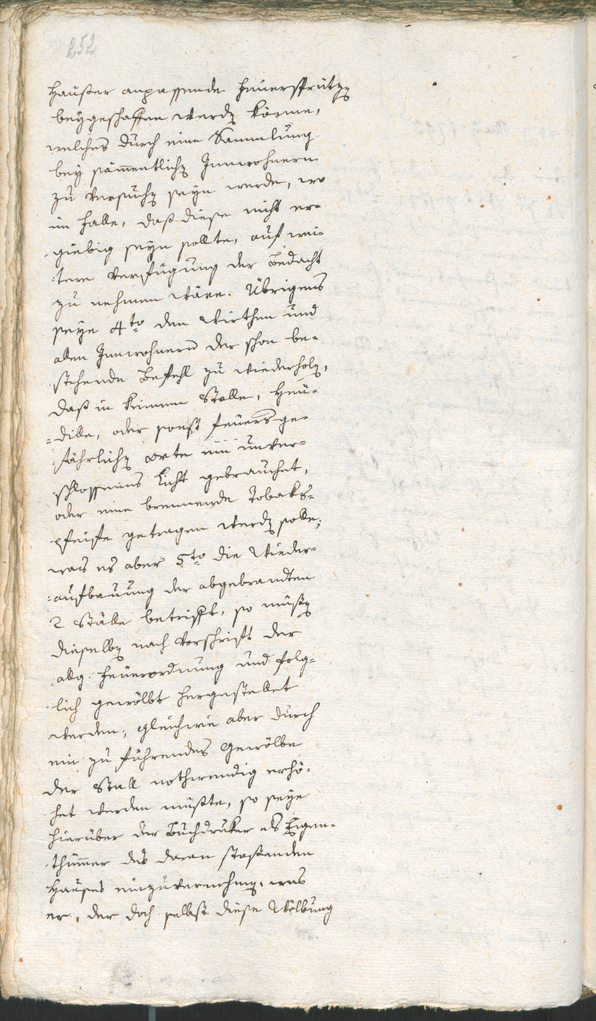 252
Häuser anpassende Feuerspritzen
beygeschaffen werden könne,
welches durch eine Sammlung
bey sämmentlichen Innwohnern
zu versuchen seyn werde, wo
im Falle, daß diese nicht er-
giebig seyn sollte, auf wei-
tere Verfügung der Bedacht
zu nehmen wäre. Übrigens
seye 4to den Wirthen und
allen Innwohnern der schon be-
stehende Befehl zu wiederholen,
daß in keinem Stalle, Heu-
dille, oder sonst feuersge-
fährlichen Orte ein unver-
schlossenes Licht gebrauchet,
oder eine brennende Tobaks-
pfeife getragen werden solle;
was es aber 5to die Wieder-
aufbauung der abgebrandten
2 Ställe betrifft, so müßen
dieselben nach Vorschrift der
allg. Feuerordnung und folg-
lich gewölbt hergestellet
werden, gleichwie aber durch
ein zu führendes Gewölbe
der Stall nothwendig erhö-
het werden müßte, so seye
hierüber der Buchdruker als Eigen-
thümer des daran stoßenden
Hauses einzuvernehmen, was
er, der doch selbst diese Wölbung